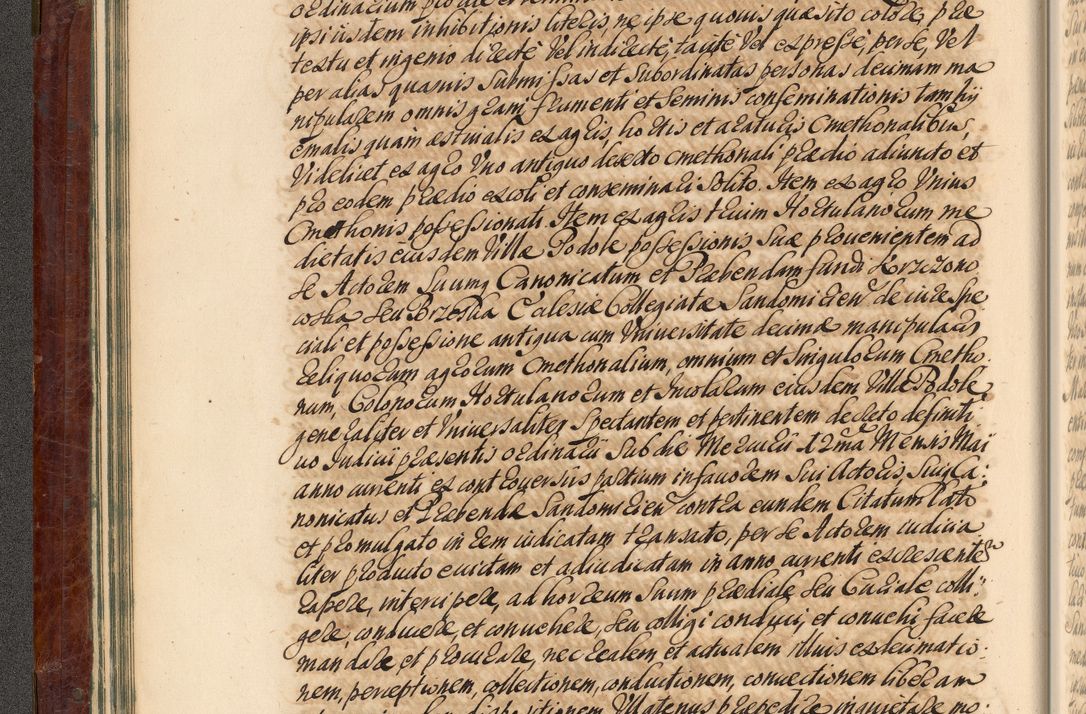 ipsiusdem inhibitionis literis, ne ipse quouis quæsito colore, præ
textu et ingenio directè vel indirectè, tacitè vel expressè, per se, vel
per alias quauis submissas et subordinatas personas decimam ma
nipularem omnis grani frumenti et seminis conseminationis tam hy
emalis quàm æstiualis ex agris, hortis et areaturis Cmethonalibus,
videlicet ex agro vno antiquo deserto cmethonali prædio adiuncto et
pro eodem prædio excoli et conseminari solito. Item ex agro vnius
Cmethonis possessionati. Item ex agris trium Hortulanorum me
dietatis eiusdem Villæ Podole possessionis suæ prouenientem ad
se Actorem suumq Canonicatum et Præbendam fundi Krzczono
Ecclesiæ Collegiatæ Sandomirien de iure spe
ciali et possessione antiqua cum vniuersitate decimæ manipularis
reliquorum agrorum Cmethonalium, omnium et singulorum Cmetho
num, Colonorum Hortulanorum et Incolarum eiusdem Villæ Podole
generaliter et vniuersaliter spectantem et pertinentem decreto definiti
uo Iudicii præsentis ordinarii sub die Mercurii 12ma Mensis Maii
anno currenti ex controuersiis partium in fauorem sui Actoris, suiq Ca:
nonicatus et Præbendæ Sandomirien contra eundem Citatum lato
et promulgato in rem iudicatam transacto, per se Actorem iudicia
liter producto euictam et adiudicatam in anno currenti excrescente
rapere, intercipere, ad horreum suum prædiale seu Curiale colli:
gere, conducere, et conuehere, seu colligi conduci, et conuehi facere
mandare et procurare, nec realem et actualem illius exdecimatio:
nem, perceptionem, collectionem, conductionem, conuectionem liberam